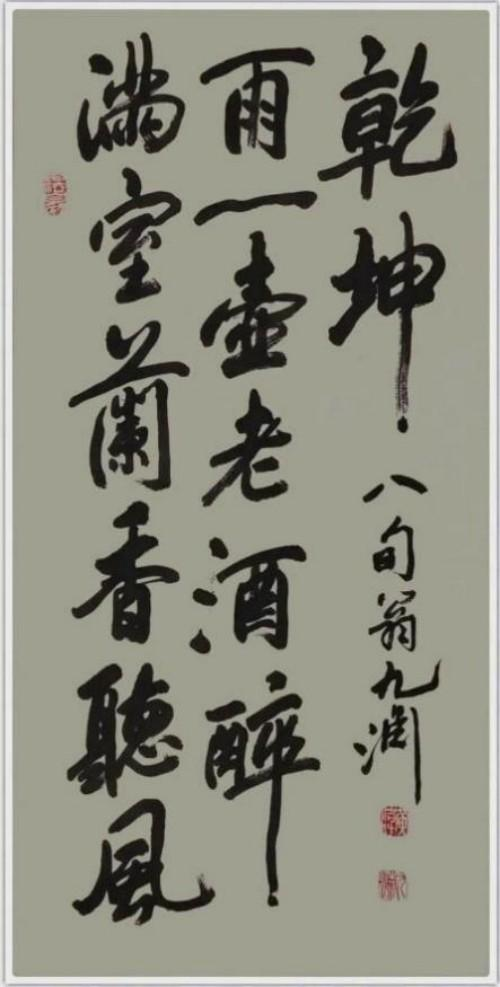 滿室蘭香聽風
雨一壺老酒醉
乾坤
八旬翁九